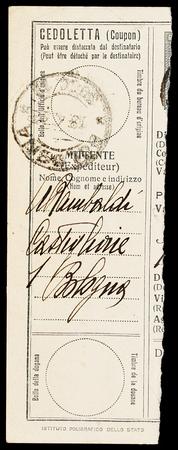 CEDOLETTA (Coupon)
Può essere distaccata dal destinatario
(Peut être détaché par le destinataire)
Bollo dell'ufficio d'origine
Timbre du bureau d'origine
MITTENTE
(Expéditeur)
Nome, cognome e indirizzo
(Nom et adresse)
Castiglione
Bologna
Bollo della dogana
Timbre de la douane
ISTITUTO POLIGRAFICO DELLO STATO